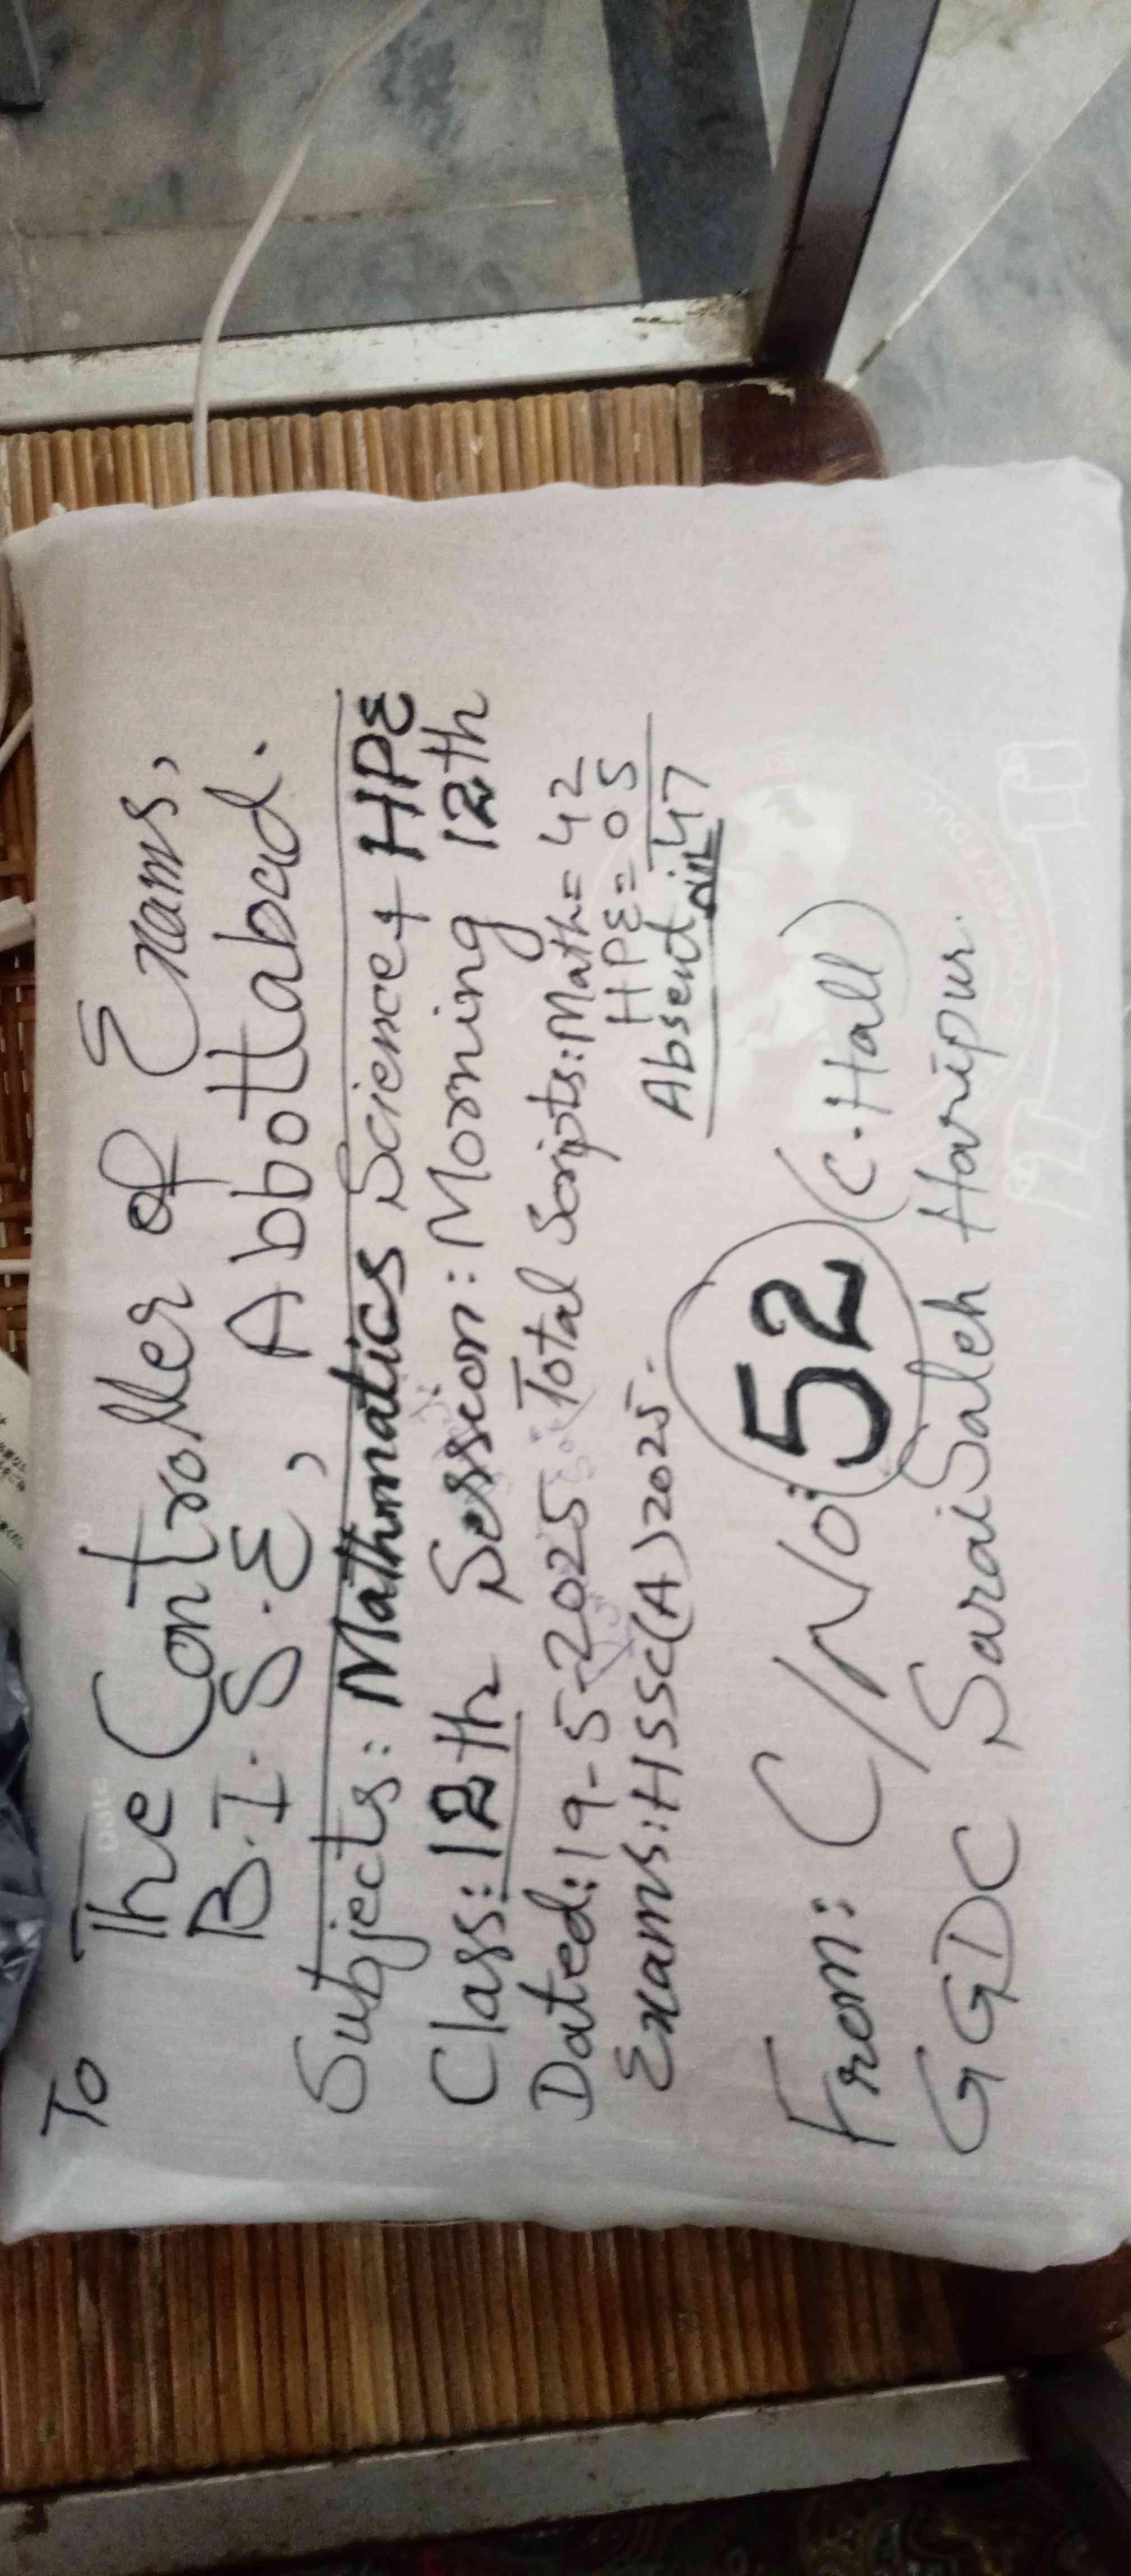 To
The Controller of Exams,
B.I.S.E, Abbottabad.
Subjects: Mathmatics Science + HPE
Class: 12th Session: Morning 12th
Dated: 19-5-2025 Total Scripts: Math = 42
HPE = 05
47
Exams: HSSC(A) 2025. Absent: NIL
From: C/No: 52 (C.Hall)
GGDC Sarai Saleh Haripur.